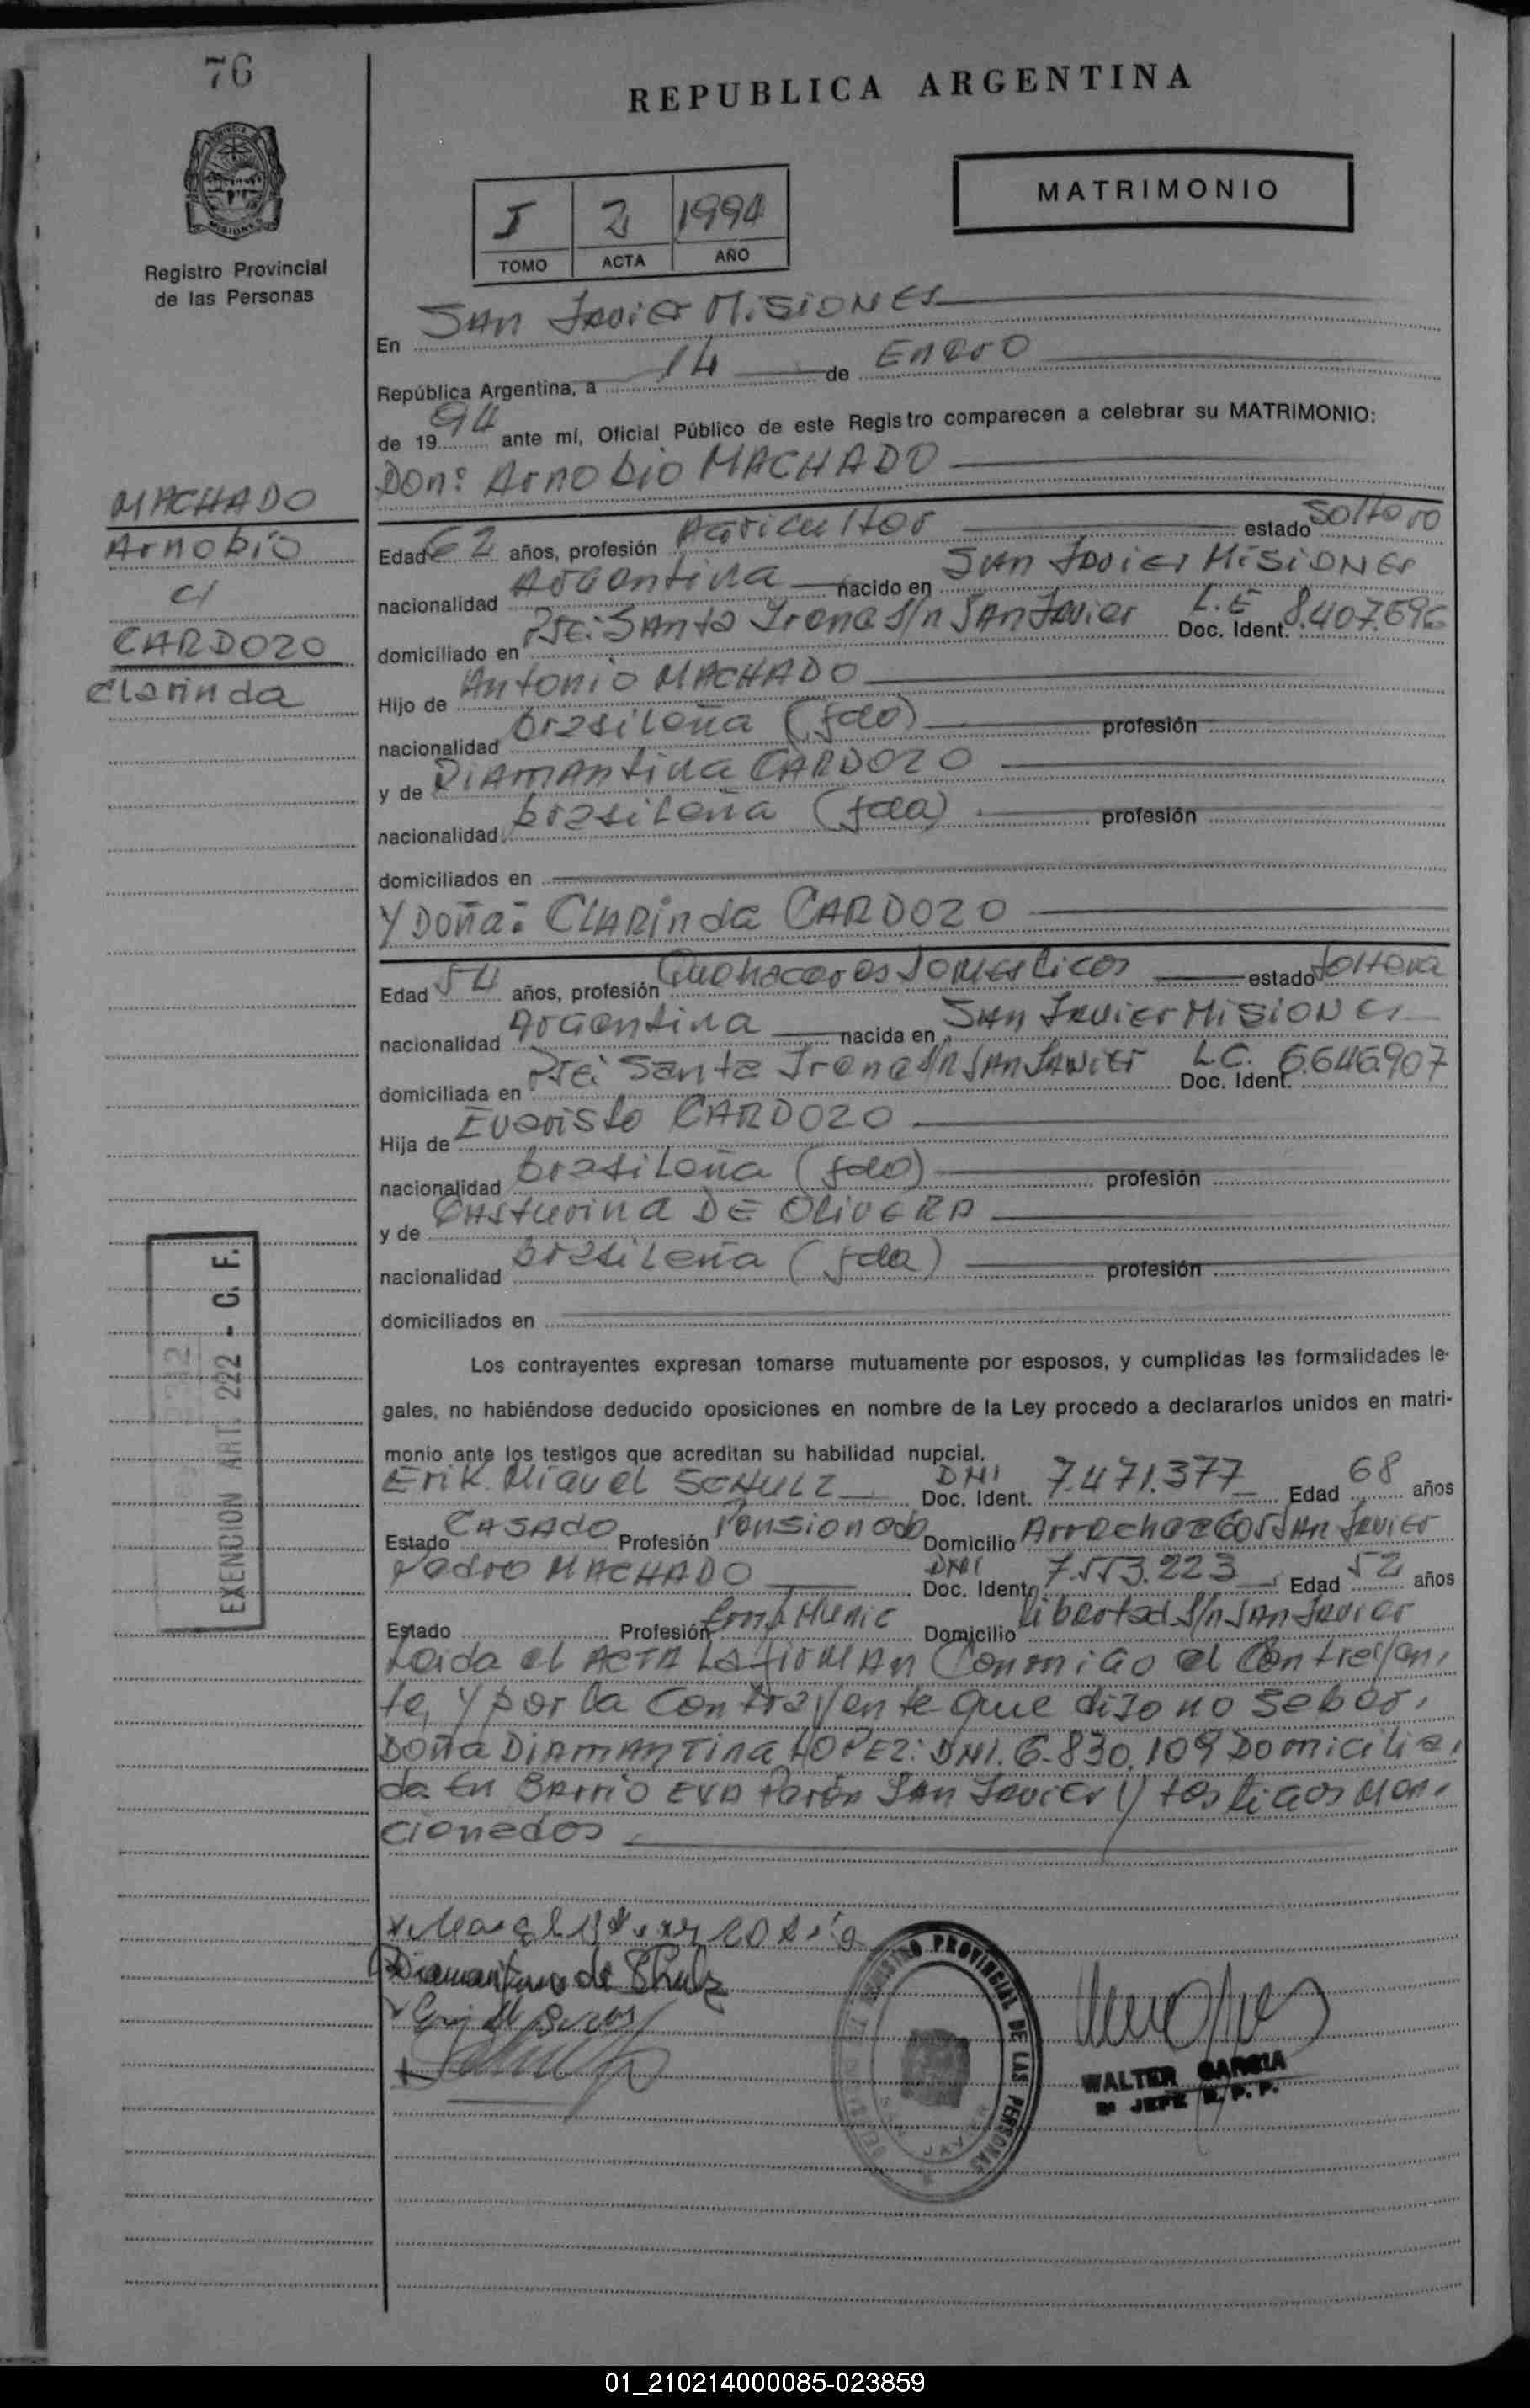 76
REPUBLICA ARGENTINA
MATRIMONIO
I 2 1994
TOMO ACTA AÑO
Registro Provincial
de las Personas
En SAN JAVIER MISIONES
República Argentina, a 14 de Enero
de 1994 ante mí, Oficial Público de este Registro comparecen a celebrar su MATRIMONIO:
Don: Arnobio MACHADO
MACHADO
Arnobio
c/
CARDOZO
Clarinda
Edad 62 años, profesión Agricultor estado soltero
nacionalidad Argentina nacido en SAN JAVIER MISIONES
domiciliado en Pje: SANta Irene S/n SAN JAVIER Doc. Ident. L.E 8.407.696
Hijo de Antonio MACHADO
nacionalidad brasileña (fdo) profesión
y de DIAMANtina CARDOZO
nacionalidad brasileña (fda) profesión
domiciliados en
Y DOñA: CLARInda CARDOZO
Edad 54 años, profesión Quehaceres Domesticos estado soltera
nacionalidad Argentina nacida en SAN JAVIER MISIONES
domiciliada en Pje: Santa Irene S/n SAN JAVIER Doc. Ident. L.C. 6.646.907
Hija de Evaristo CARDOZO
nacionalidad brasileña (fdo) profesión
y de CASturina DE OLIVERA
nacionalidad brasileña (fda) profesión
domiciliados en
Los contrayentes expresan tomarse mutuamente por esposos, y cumplidas las formalidades le-
gales, no habiéndose deducido oposiciones en nombre de la Ley procedo a declararlos unidos en matri-
monio ante los testigos que acreditan su habilidad nupcial.
Erik Miguel SCHULZ Doc. Ident. DNI 7.471.377 Edad 68 años
Estado CASADO Profesión Pensionado Domicilio Arrechea 605 SAN JAVIER
Pedro MACHADO Doc. Ident. DNI 7.553.223 Edad 52 años
Estado Profesión Domicilio libertad S/n SAN Javier
Leida el ACTA LA firmAn Conmigo el Contrayen,
te, y por la Contrayente que dijo no saber,
DOña DIAMANTina LOPEZ: DNI. 6.830.109 Domicilia,
da En BArriO EVA Perón SAN Javier y testigos Men,
cionados
Diamantina de Shulz
REGISTRO PROVINCIAL DE LAS PERSONAS
SAN JAVIER
WALTER GARCIA
2º JEFE R. P. P.
EXENCION ART. 222 - C. F.
01_210214000085-023859